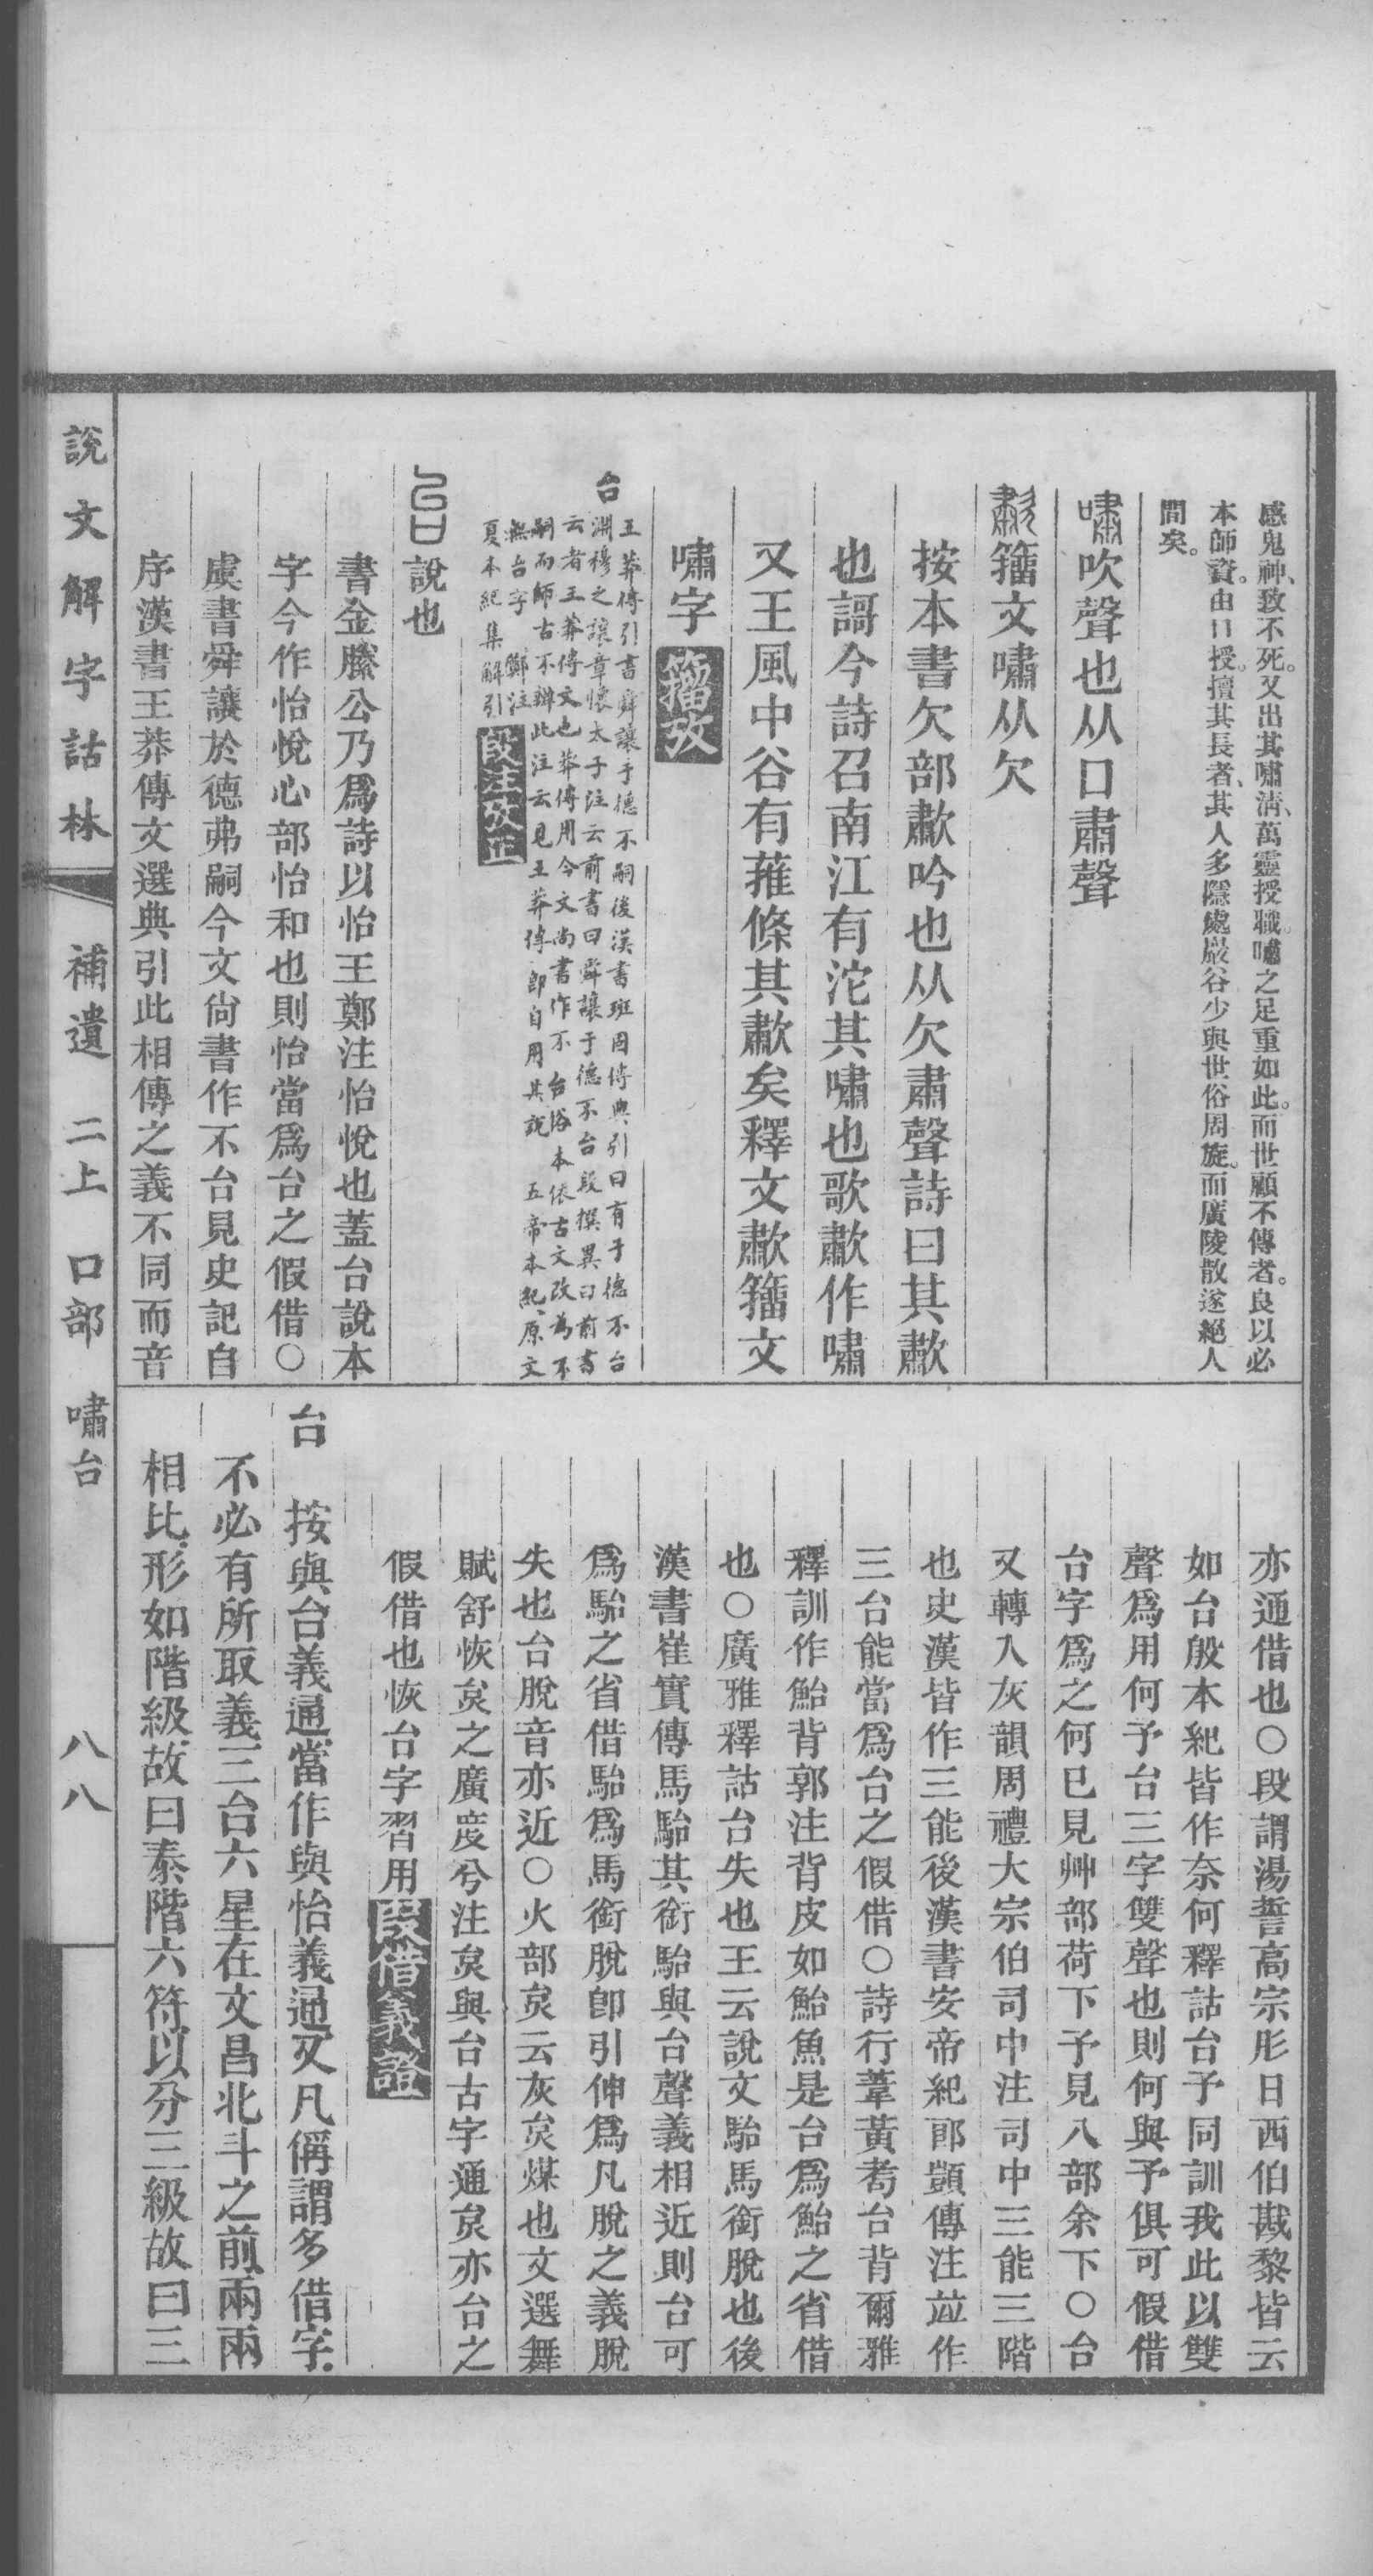 感鬼神、致不死。又出其嘯淸、萬靈授職。嘯之足重如此。而世顧不傳者。良以必
本師資。由口授。擅其長者、其人多隱處巖谷少與世俗周旋。而廣陵散遂絕人
間矣。
嘯吹聲也从口肅聲
歗籒文嘯从欠
按本書欠部歗吟也从欠肅聲詩曰其歗
也謌今詩召南江有沱其嘯也歌歗作嘯
又王風中谷有蓷條其歗矣釋文歗籒文
嘯字 籒攷
台
王莽傳引書舜讓于德不嗣後漢書班固傳典引曰有于德不台
淵穆之讓章懷太子注云前書曰舜讓于德不台段撰異曰前書
云者王莽傳文也莽傳用今文尚書作不台俗本依古文改為不
嗣而師古不辨此注云見王莽傳卽自用其說 五帝本紀原文
無台字 鄭注
夏本紀集解引 段注攷正
台說也
書金縢公乃爲詩以怡王鄭注怡悅也蓋台說本
字今作怡悅心部怡和也則怡當爲台之假借○
虞書舜讓於德弗嗣今文尙書作不台見史記自
序漢書王莽傳文選典引此相傳之義不同而音
亦通借也○段謂湯誓高宗肜日西伯戡黎皆云
如台殷本紀皆作奈何釋詁台予同訓我此以雙
聲爲用何予台三字雙聲也則何與予俱可假借
台字爲之何巳見艸部荷下予見八部余下○台
又轉入灰韻周禮大宗伯司中注司中三能三階
也史漢皆作三能後漢書安帝紀郎顗傳注竝作
三台能當爲台之假借○詩行葦黃耉台背爾雅
釋訓作鮐背郭注背皮如鮐魚是台爲鮐之省借
也○廣雅釋詁台失也王云說文駘馬銜脫也後
漢書崔寔傳馬駘其銜駘與台聲義相近則台可
爲駘之省借駘爲馬銜脫卽引伸爲凡脫之義脫
失也台脫音亦近○火部炱云灰炱煤也文選舞
賦舒恢炱之廣度兮注炱與台古字通炱亦台之
假借也恢台字習用 段借義證
台 按與台義通當作與怡義通又凡偁謂多借字.
不必有所取義三台六星在文昌北斗之前兩兩
相比形如階級故曰泰階六符以分三級故曰三
說文解字詁林 補遺 二上 口部 嘯台 八八